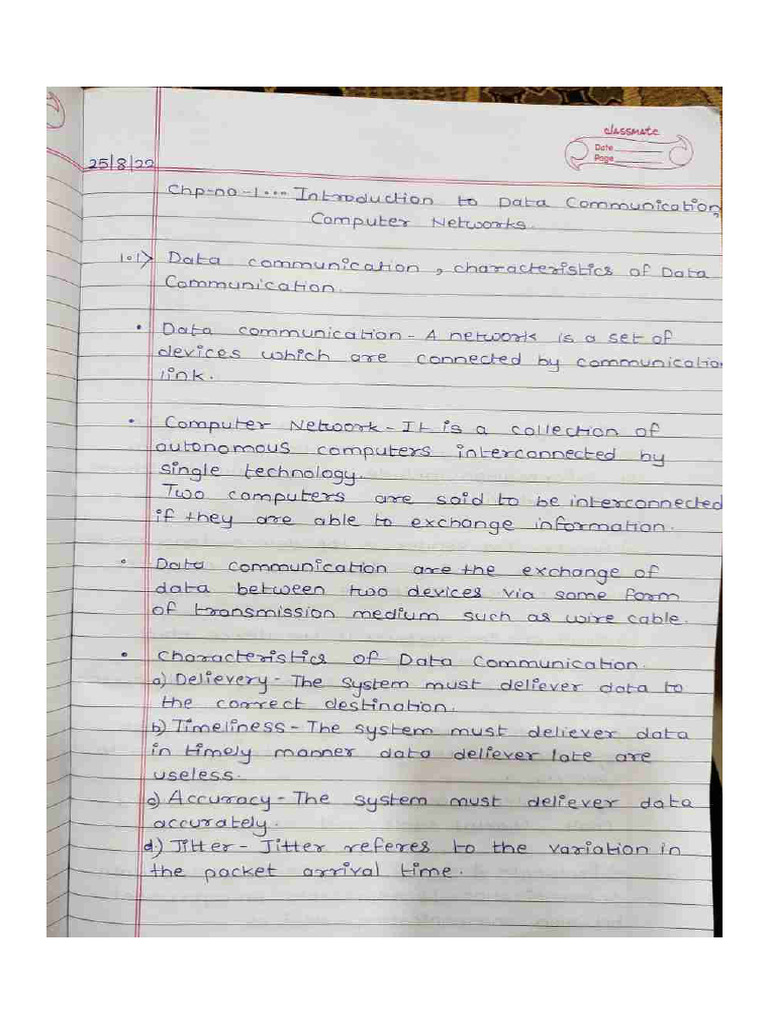 classmate
Date
Page
25/8/22
Chp-no-1... Introduction to Data Communication,
Computer Networks.
1.1> Data communication, characteristics of Data
Communication.
• Data communication - A network is a set of
devices which are connected by communication
link.
• Computer Network - It is a collection of
autonomous computers interconnected by
single technology.
Two computers are said to be interconnected
if they are able to exchange information.
• Data communication are the exchange of
data between two devices via some form
of transmission medium such as wire cable.
• Characteristics of Data Communication.
a) Delievery - The system must deliever data to
the correct destination.
b) Timeliness - The system must deliever data
in timely manner data deliever late are
useless.
c) Accuracy - The system must deliever data
accurately.
d.) Jitter - Jitter referes to the variation in
the packet arrival time.